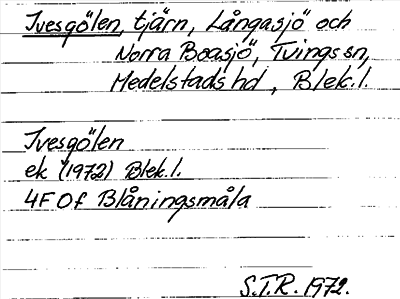 Ivesgölen, tjärn, Långasjö och
Norra Boasjö, Tvings sn,
Medelstads hd, Blek.l.
Ivesgölen
ek (1972) Blek.l.
4F Of Blåningsmåla
S.T.R. 1972.